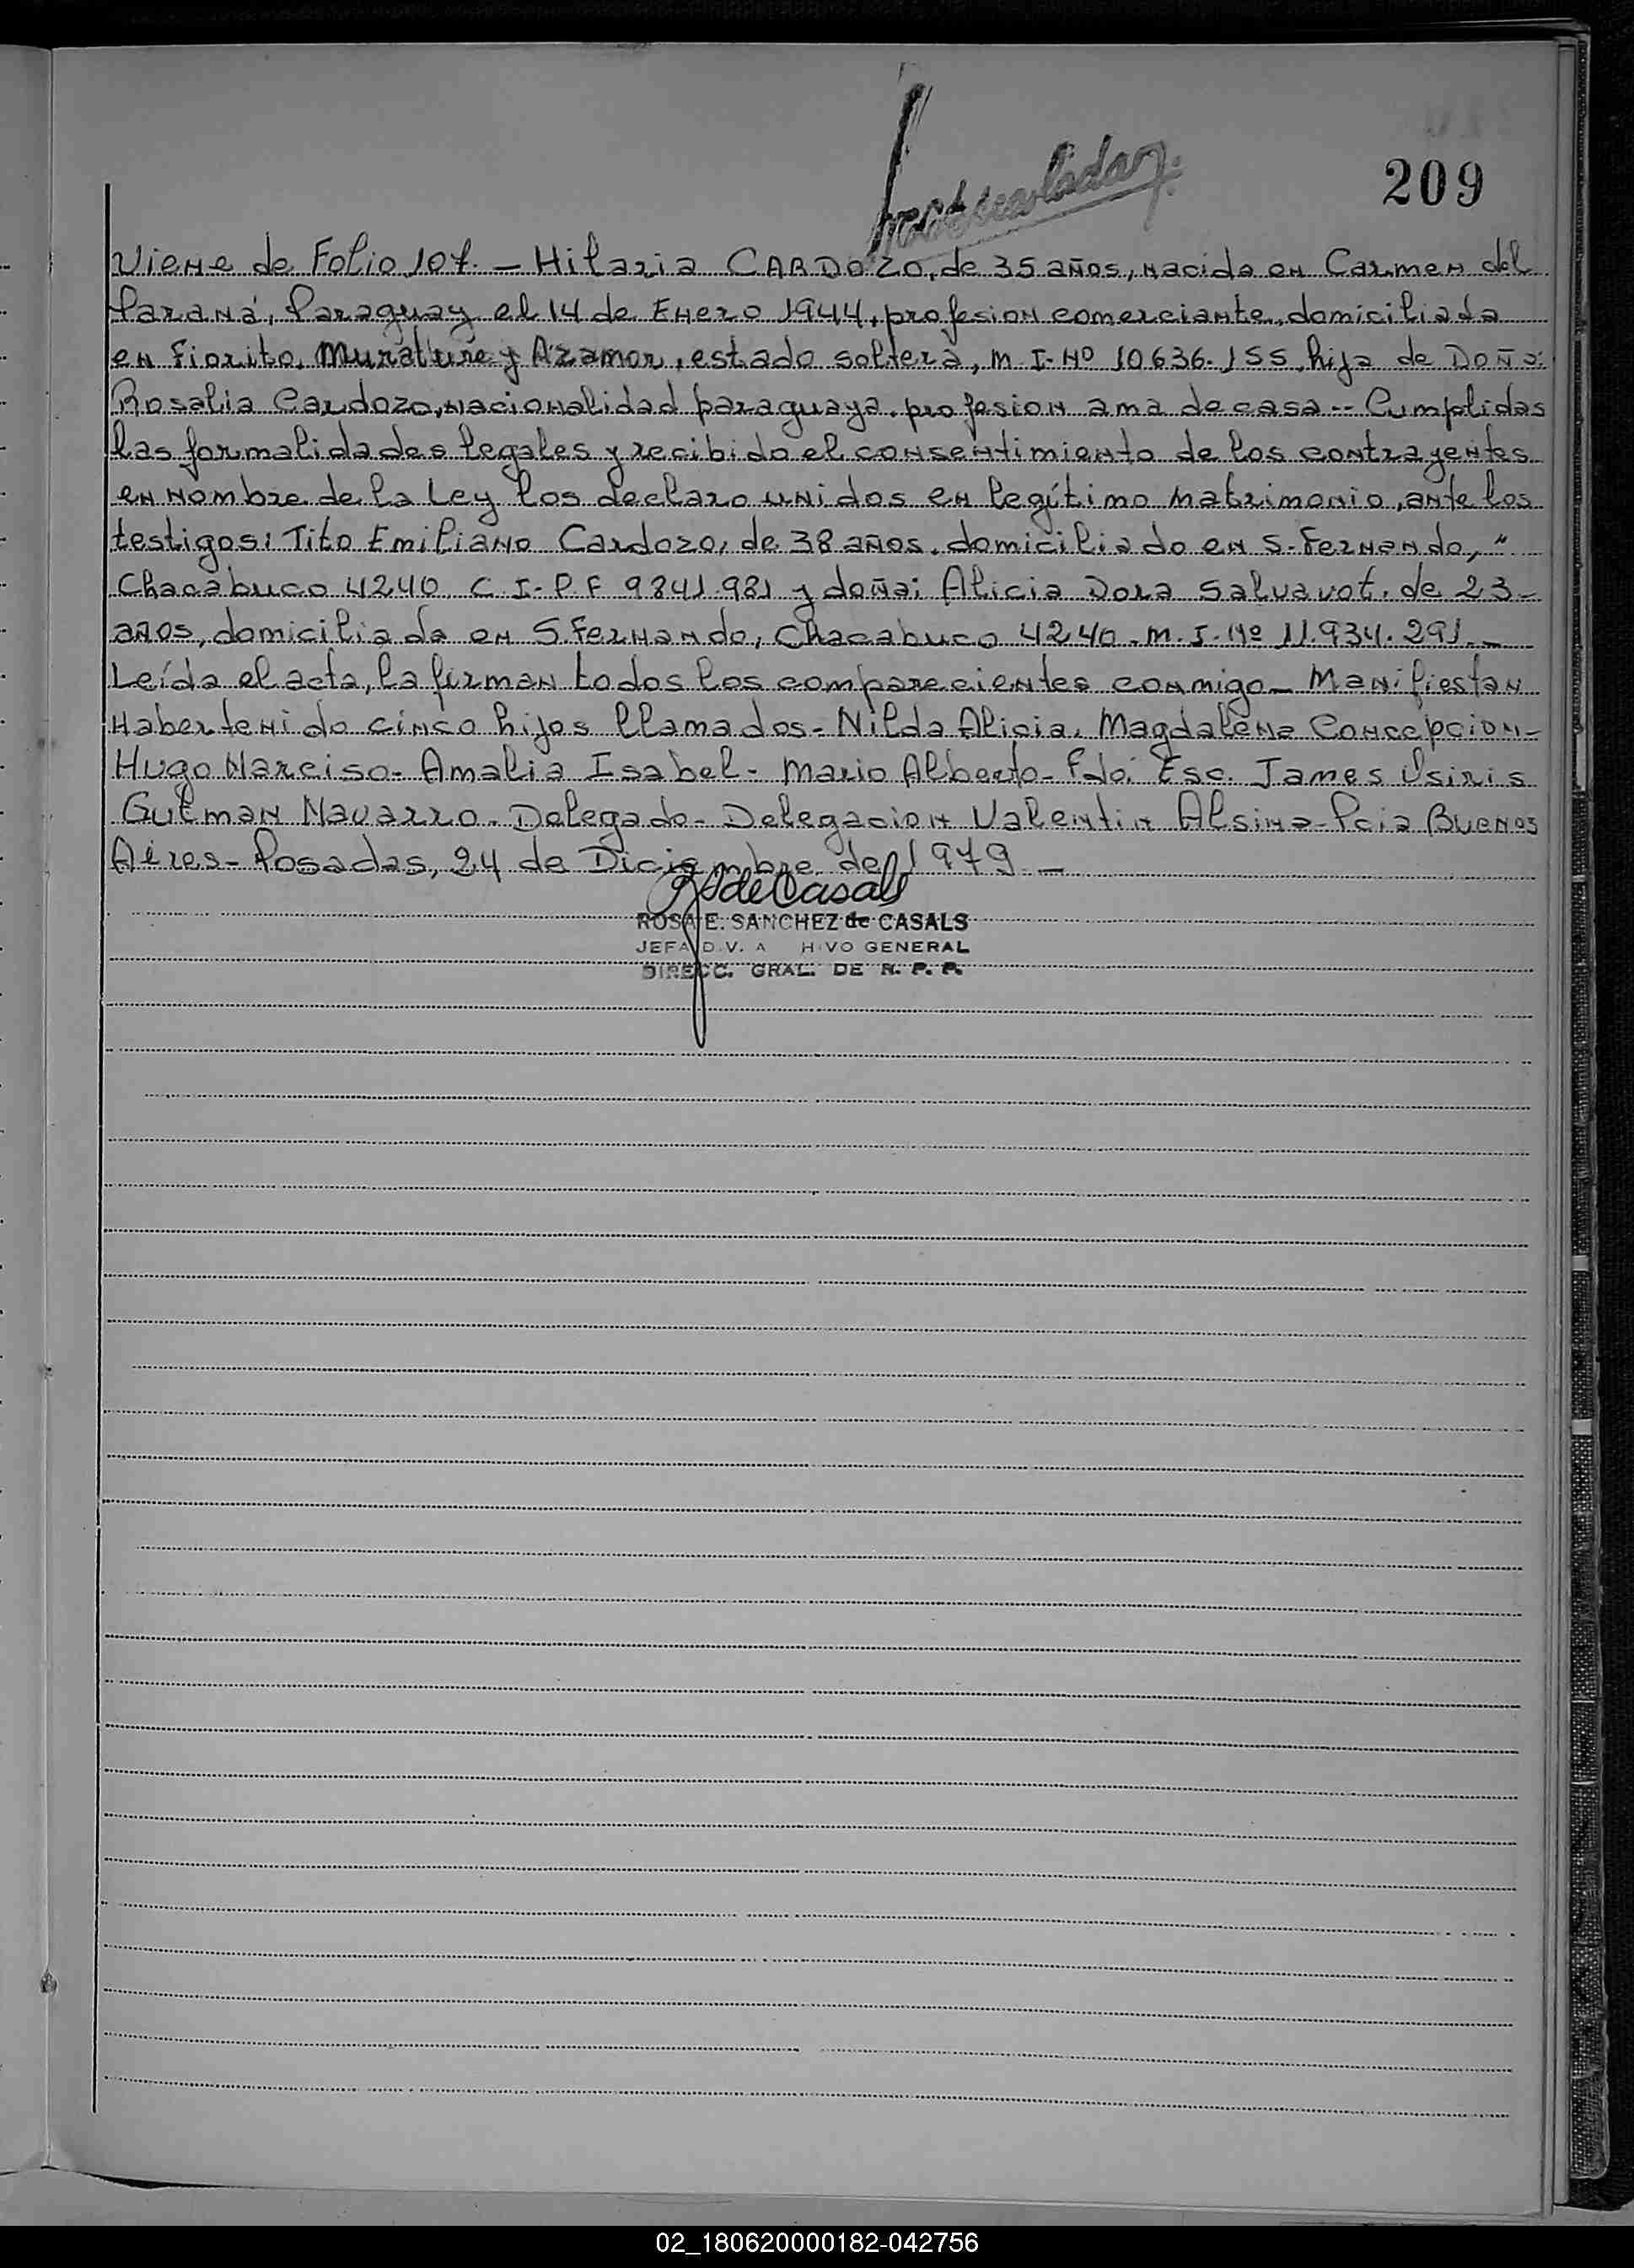 209
Viene de Folio 107. - Hilaria CARDOZO, de 35 años, nacida en Carmen del
Paraná, Paraguay el 14 de Enero 1944, profesion comerciante, domiciliada
en Fiorito, Murature y Azamor, estado soltera, M. I. Nº 10636.155, hija de Doña:
Rosalia Cardozo, nacionalidad paraguaya, profesion ama de casa -- Cumplidas
las formalidades legales y recibido el consentimiento de los contrayentes
en nombre de la Ley los declaro unidos en legítimo matrimonio, ante los
testigos: Tito Emiliano Cardozo, de 38 años, domiciliado en S. Fernando, "
Chacabuco 4240 C. I. P. F 9841.981 y doña: Alicia Dora de 23-
años, domiciliada en S. Fernando, Chacabuco 4240. M. I. Nº 11.934.291.-
Leída el acta, la firman todos los comparecientes conmigo - Manifiestan
Haber tenido cinco hijos llamados - Nilda Alicia, Magdalena Concepcion -
Hugo Narciso - Amalia Isabel - Mario Alberto - Fdo: Esc. James
Gutman Navarro - Delegado - Delegacion Valentin Alsina - Pcia Buenos
Aires - Posadas, 24 de Diciembre de 1979 -
de Casals
ROSA E. SANCHEZ de CASALS
JEFA DIV. A HIVO GENERAL
DIRECC. GRAL. DE R. P. P.
02_180620000182-042756